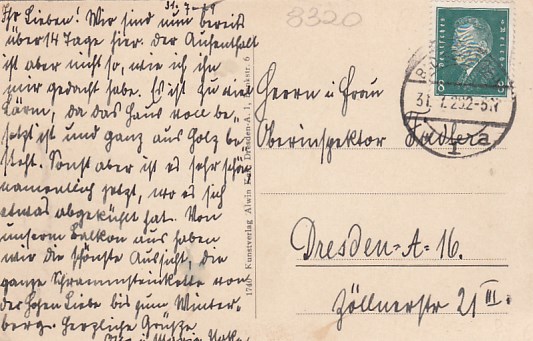 31. 7. 29
Ihr Lieben! Wir sind nun bereits
über 14 Tage hier. der Aufenthalt
ist aber nicht so, wie ich ihn
mir gedacht habe. Es ist zu viel
Lärm, da das Haus voll be-
setzt ist und ganz aus Holz be
steht. Sonst aber ist es sehr schön
namentlich jetzt, wo es sich
etwas abgekühlt hat. Von
unserm Balkon aus haben
wir die schönste Aussicht, die
ganze Schrammsteinkette von
der Hohen Liebe bis zum Winter-
berg. Herzliche Grüsse
8320
1740 Kunstverlag Alwin Dresden-A. 1 6
Deutsches Reich
8 8
31.7.29.2-5N
Herrn u Frau
Oberinspektor
Dresden-A-16.
Zöllnerstr 21 III.